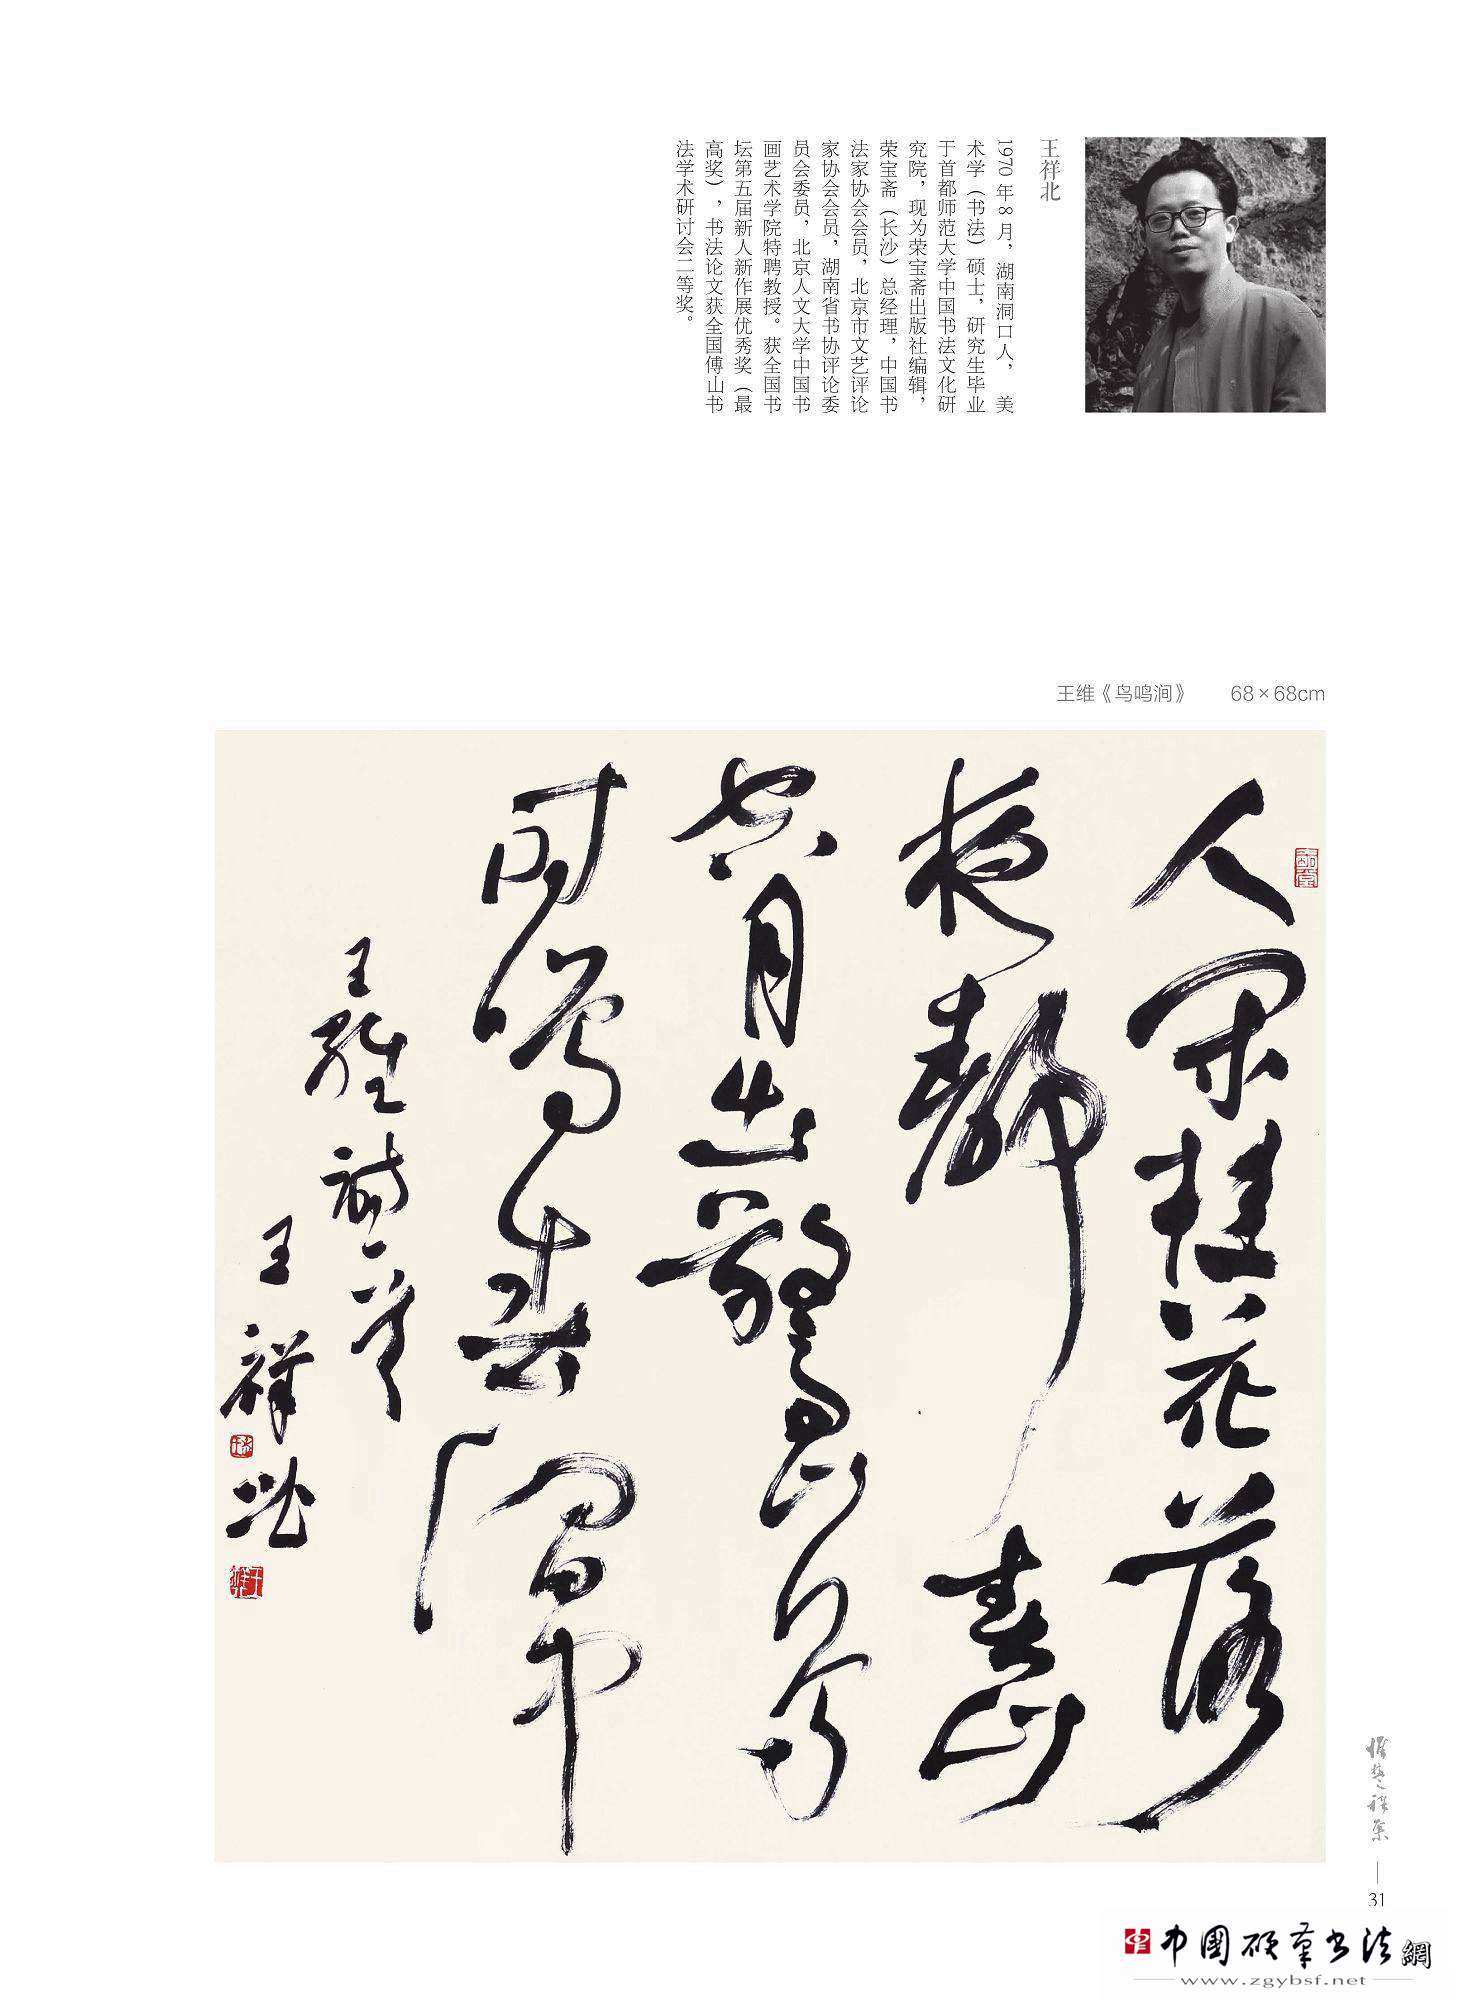 王祥北
1970 年 8 月，湖南洞口人，美
术学（书法）硕士，研究生毕业
于首都师范大学中国书法文化研
究院，现为荣宝斋出版社编辑，
荣宝斋（长沙）总经理，中国书
法家协会会员，北京市文艺评论
家协会会员，湖南省书协评论委
员会委员，北京人文大学中国书
画艺术学院特聘教授。获全国书
坛第五届新人新作展优秀奖（最
高奖），书法论文获全国傅山书
法学术研讨会二等奖。
王维《鸟鸣涧》 68×68cm
人闲桂花落
夜静春山
空月出惊山鸟
时鸣春涧中
王维诗一首
王祥北
31
中国硬筆书法網
www.zgybsf.net